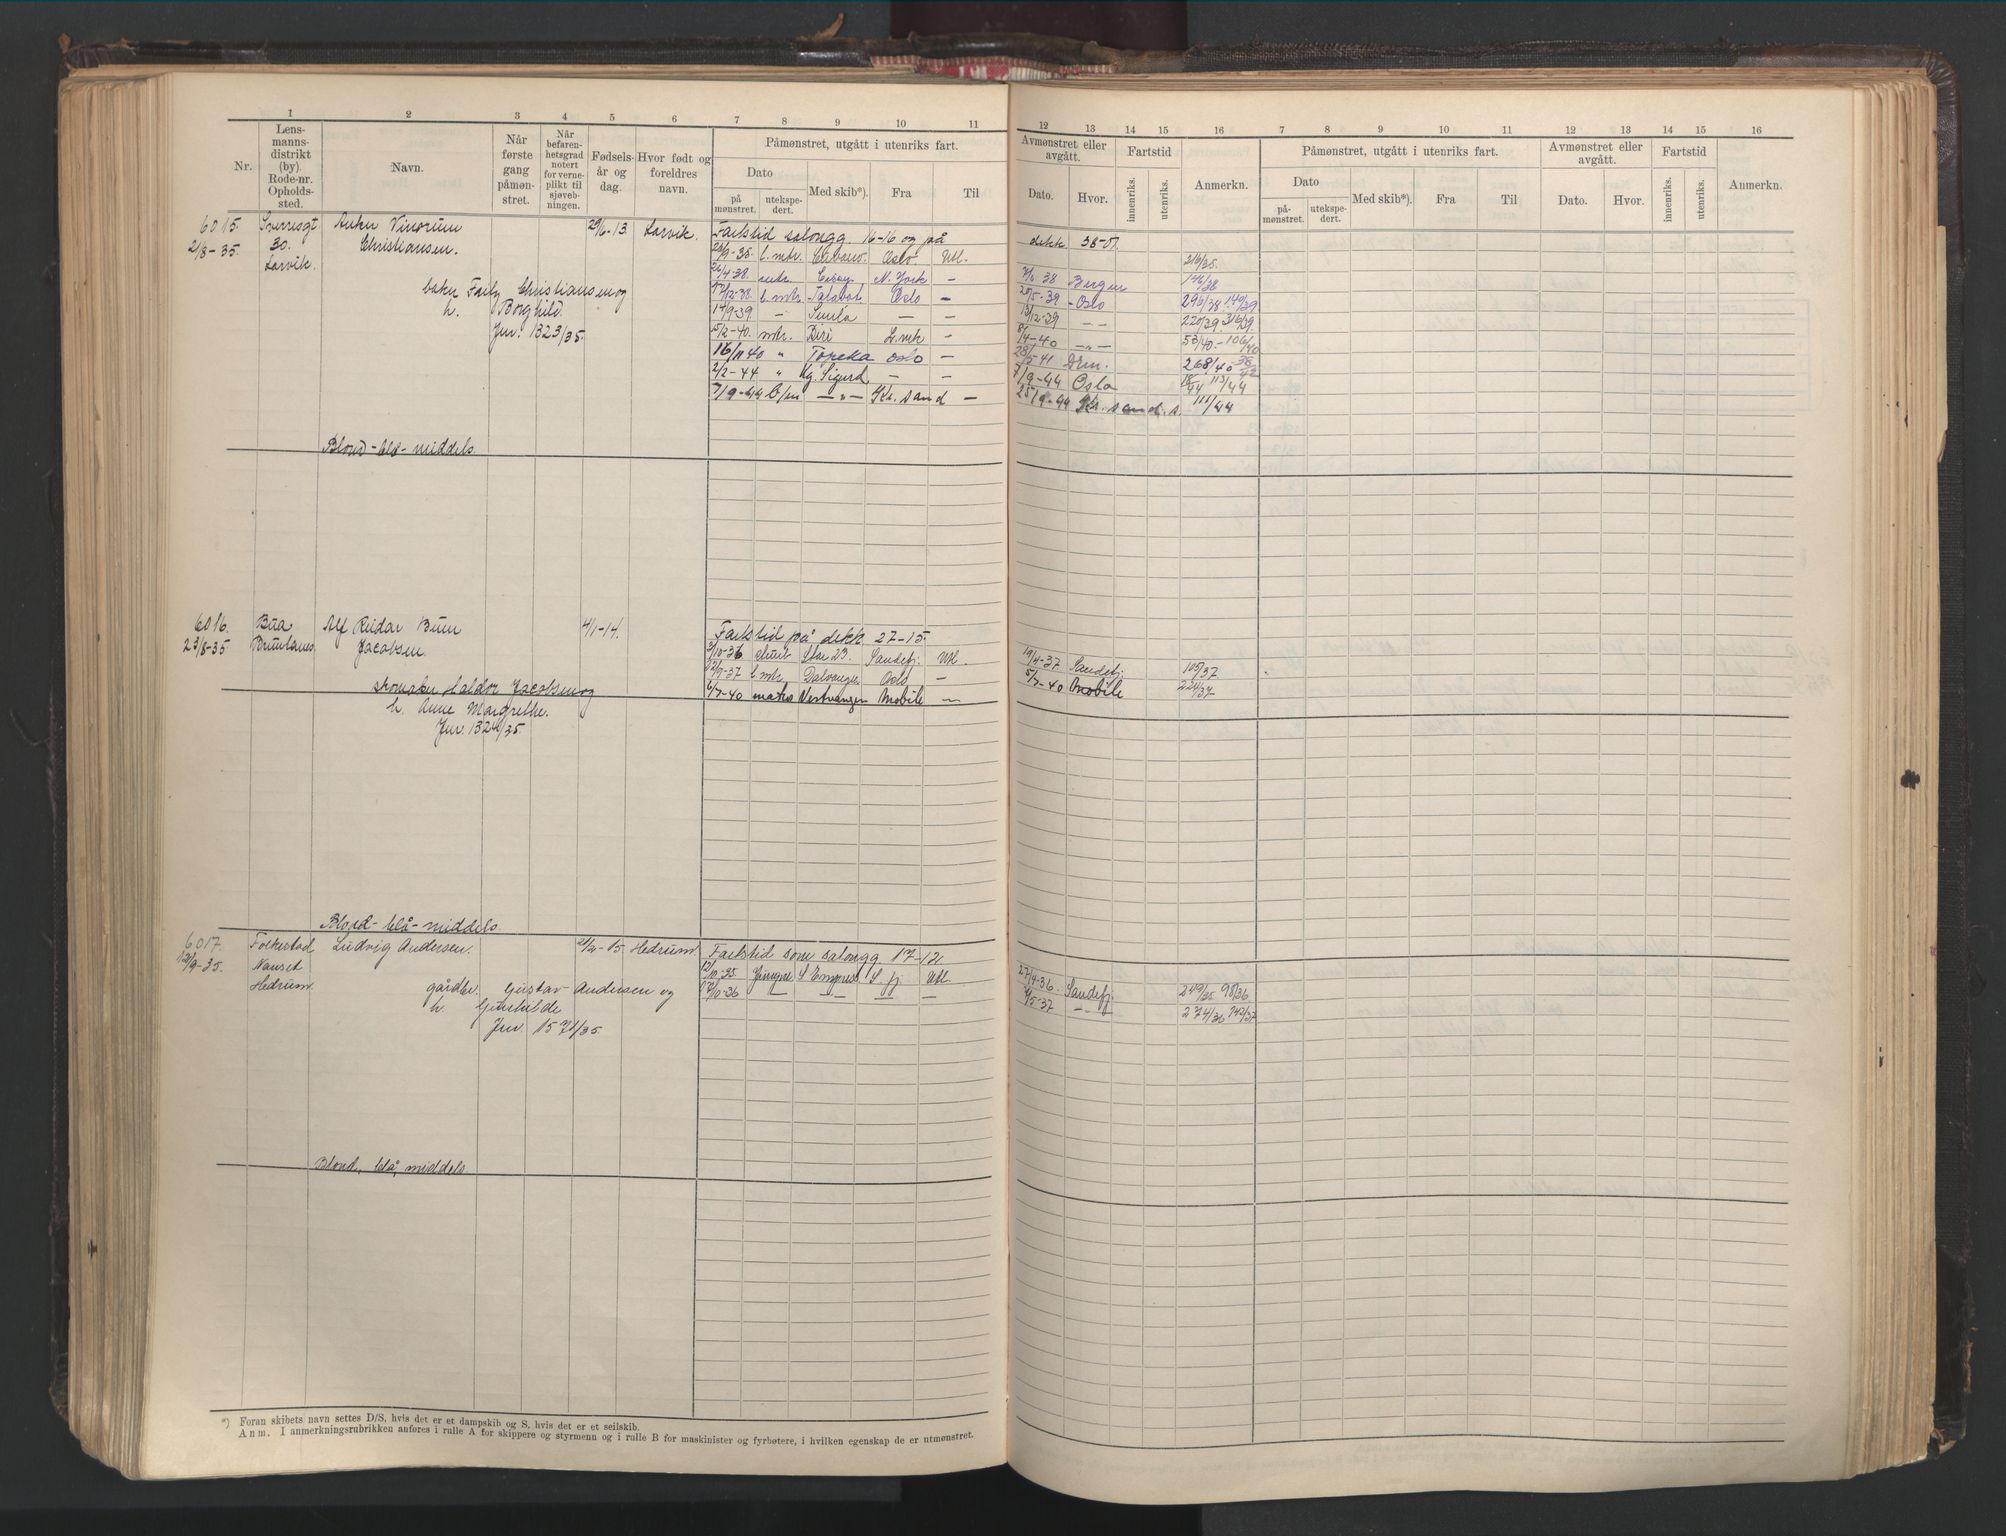 1 2 3 4 5 6 7 8 9 10 11
Nr. Lensmannsdistrikt (by). Rode-nr. Opholdssted. Navn. Når første gang påmønstret. Når befarenhetsgrad notert for verneplikt til sjøvebningen. Fødselsår og dag. Hvor født og foreldres navn. Påmønstret, utgått i utenriks fart.
Dato Med skib*). Fra Til
på mønstret. utekspedert.
12 13 14 15 16 7 8 9 10 11 12 13 14 15 16
Avmønstret eller avgått. Fartstid Anmerkn. Påmønstret, utgått i utenriks fart. Avmønstret eller avgått. Fartstid Anmerkn.
Dato. Hvor. innenriks. utenriks. Dato Med skib*). Fra Til Dato. Hvor. innenriks. utenriks.
påmønstret. utekspedert.
6015. Sverresgt Anker 29/6-13. Larvik. Fartstid salongg. 16-16 og på dekk 38-01.
2/8-35. 30. Christiansen. Oslo. Utl. 216/35.
Larvik. N. York — 7/1 38 Bergen 146/38
baker Christiansen og Oslo — 20/5-39 Oslo 296/38 140/39
h. Borghild. 14/9-39 — Simla — — 13/12-39 — 220/39. 316/39
Jnr. 1323/35. 5/2-40. mtr. Diri L.vik — 8/4-40 —"— 53/40.-106/40
16/11 40 " Topeka Oslo — 28/5-41 Drm. 268/40 38/42
2/2-44 " Kg. Sigurd — — 7/9-44 Oslo 113/44
7/9-44 —"— Kr. sand — 25/9-44 Kr. sand. s. 111/44
Blond-blå-middels.
6016. Bua Alf Reidar Buen 4/1-14. Fartstid på dekk 27-15.
23/8-35 Brunlanes. Jacobsen. 3/10-36 Star 23. Sandefj. Utl. 19/4-37 Sandefj. 105/37
skomaker Haldor Jacobsen og 12/9-37 l.mtr. Dalvangen Oslo — 5/7-40 Mobile 224/37
h. Anne Margrethe. 6/7-40 matros Vestvangen Mobile —
Jnr. 1324/35.
Blond-blå-middels.
6017. Folkestad Ludvig Andersen. 2/2-15. Hedrum. Fartstid som salongg 17-12.
Nanset 12/10-35. S. Empress S.fj. Utl. 27/4-36. Sandefj. 249/35 98/36
Hedrum. gårdbr. Gustav Andersen og 12/10-36 — — — — 7/5-37 —"— 274/36 142/37
h.
Jnr. 1571/35
Blond, blå, middels.
*) Foran skibets navn settes D/S, hvis det er et dampskib og S, hvis det er et seilskib.
Anm. I anmerkningsrubrikken anføres i rulle A for skippere og styrmenn og i rulle B for maskinister og fyrbøtere, i hvilken egenskap de er utmønstret.